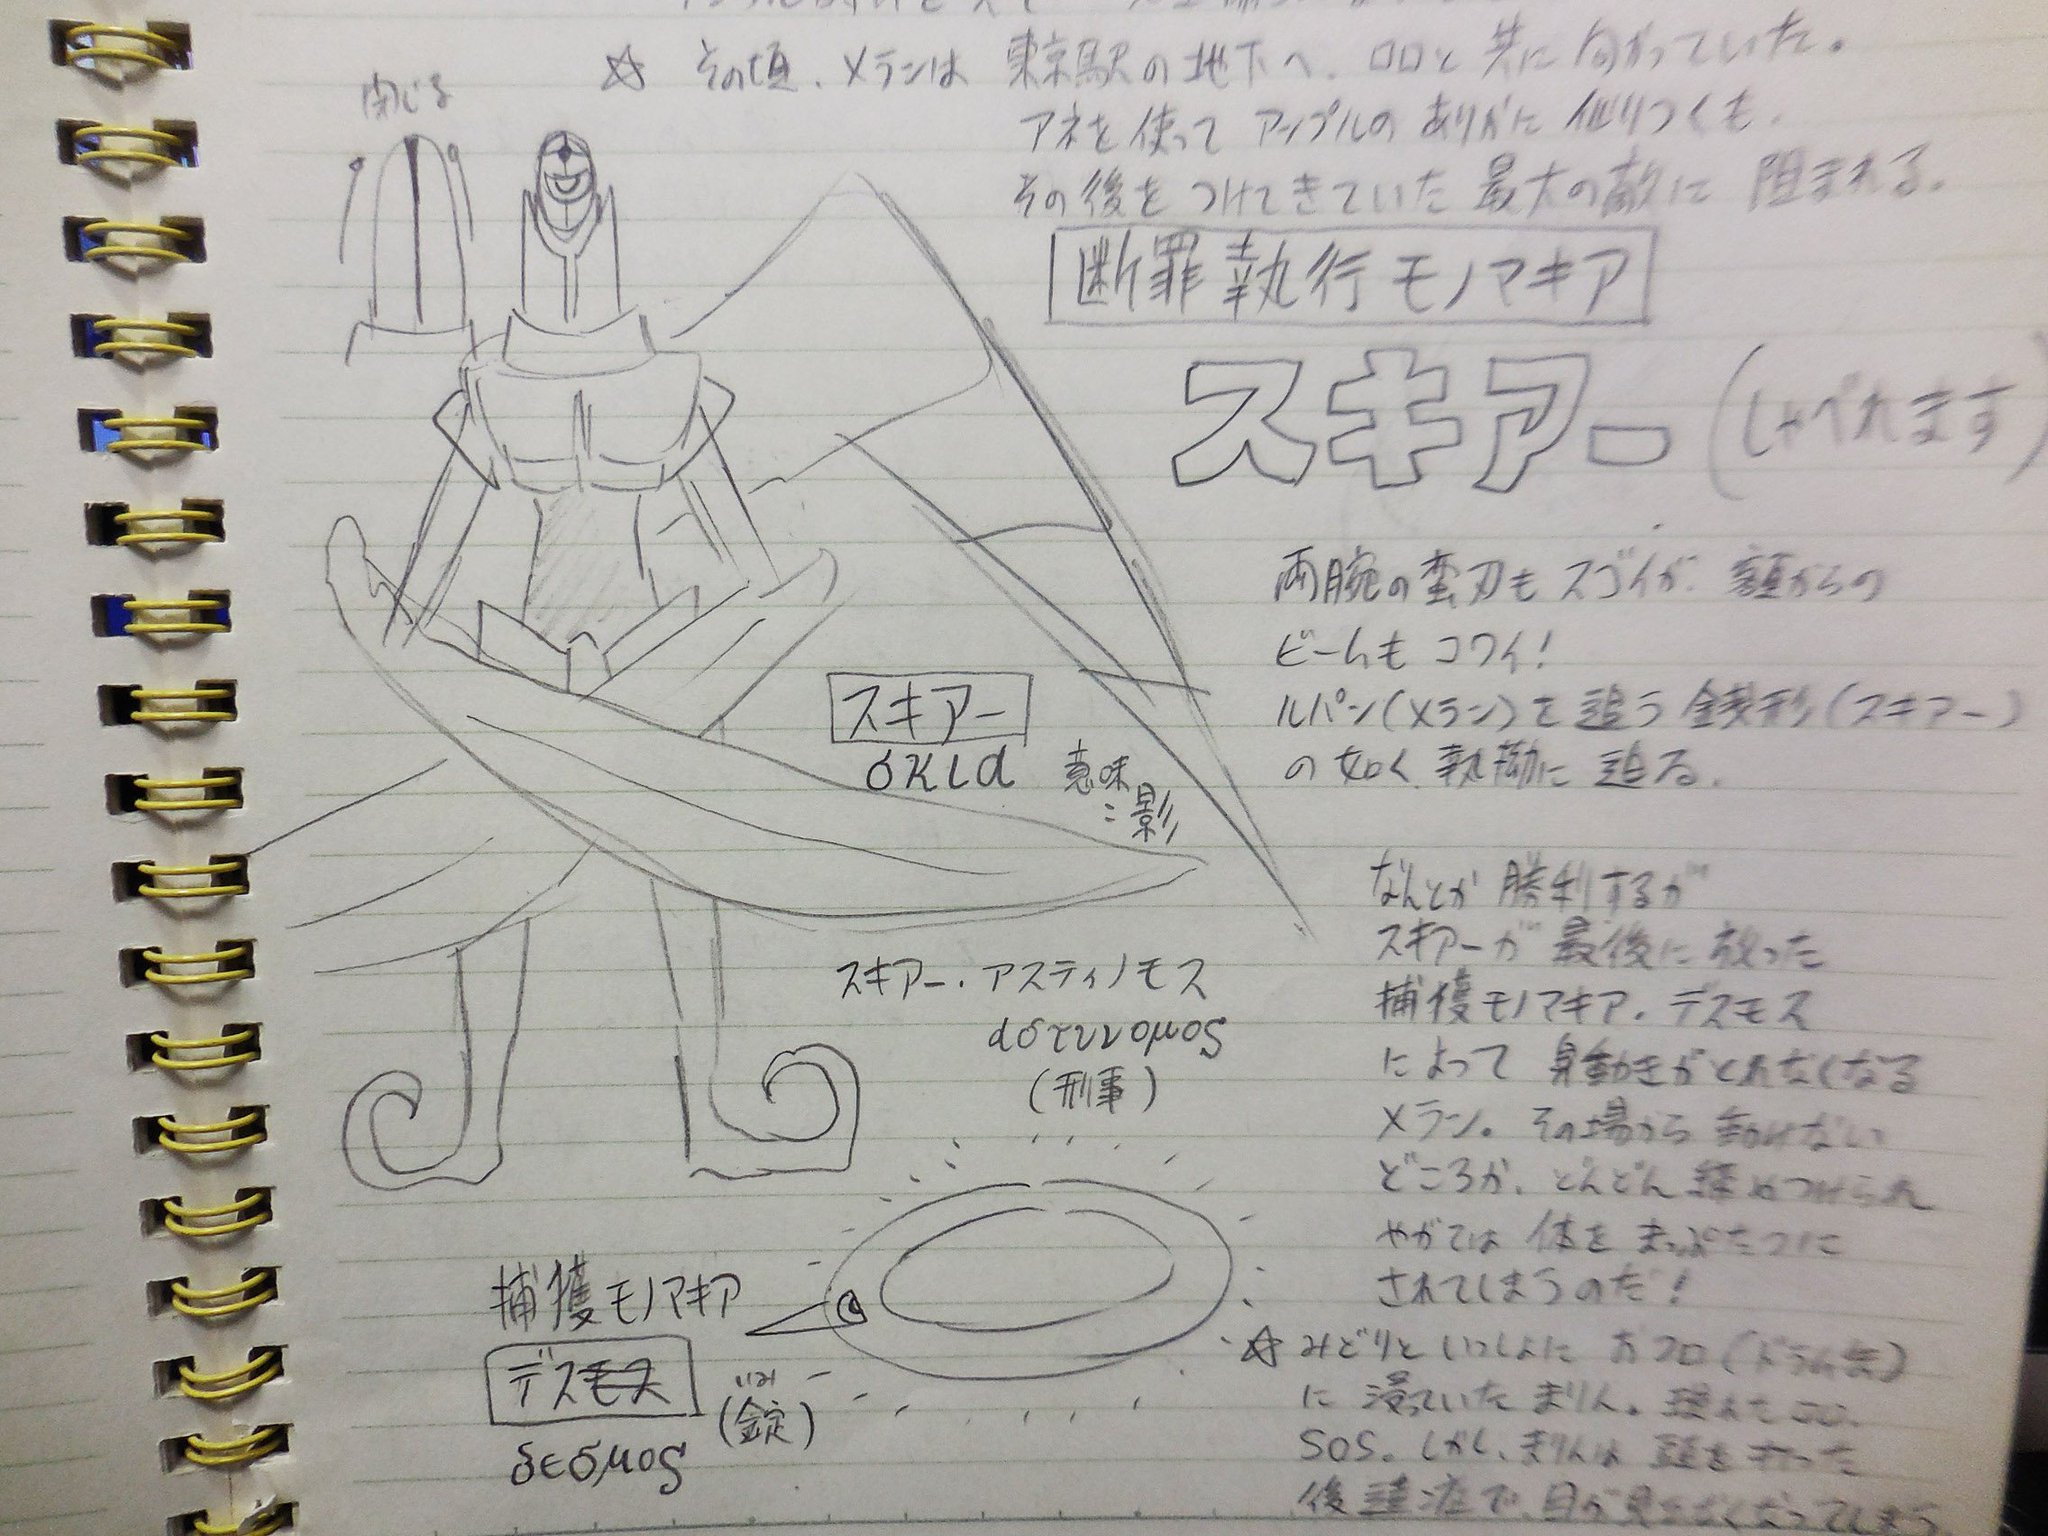 ☆ その頃、メランは 東京駅の地下へ、ロロと 共に向かっていた。
アネを使って アンプルの ありかに 辿りつくも、
その後を つけてきていた 最大の敵に 阻まれる。
閉じる
断罪執行モノマキア
スキアー (しゃべれます)
両腕の蛮刃も スゴイが、額からの
ビームも コワイ!
ルパン(メラン)を 追う 銭形(スキアー)
の如く 執拗に 迫る。
スキアー
σκια 意味:影
なんとか 勝利するが
スキアーが 最後に 放った
捕獲モノマキア・デスモス
によって 身動きがとれなくなる
メラン。その場から 動けない
どころか、どんどん 締めつけられ
やがては 体を まっぷたつに
されてしまうのだ!
スキアー・アスティノモス
αστυνομος
(刑事)
捕獲モノマキア
デスモス
いみ
(錠)
δεσμος
☆ みどりと いっしょに おフロ(ドラム缶)
に 浸っていた まりん。
SOS。しかし、まりんは 頭を 打った
後遺症で、目が見えなくなってしまう